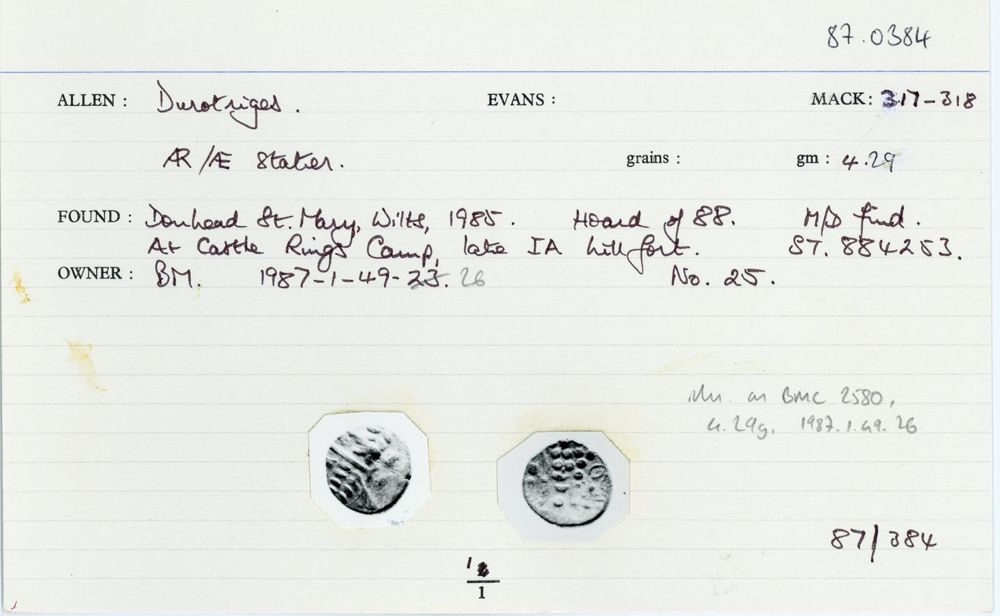 87.0384
ALLEN : Durotriges. EVANS : MACK: 317-318
AR/Æ Stater. grains : gm : 4.29
FOUND : Donhead St. Mary, Wilts, 1985. Hoard of 88. M/D find.
At Castle Rings Camp, late IA hillfort. ST. 884253.
OWNER : BM. 1987-1-49-25. 26 No. 25.
illus. as BMC 2580,
4.29g. 1987.1.49.26
87/384
1
1